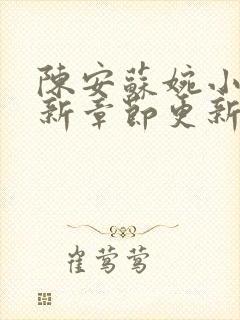 陳安蘇婉小
新章節更新
崔莺莺